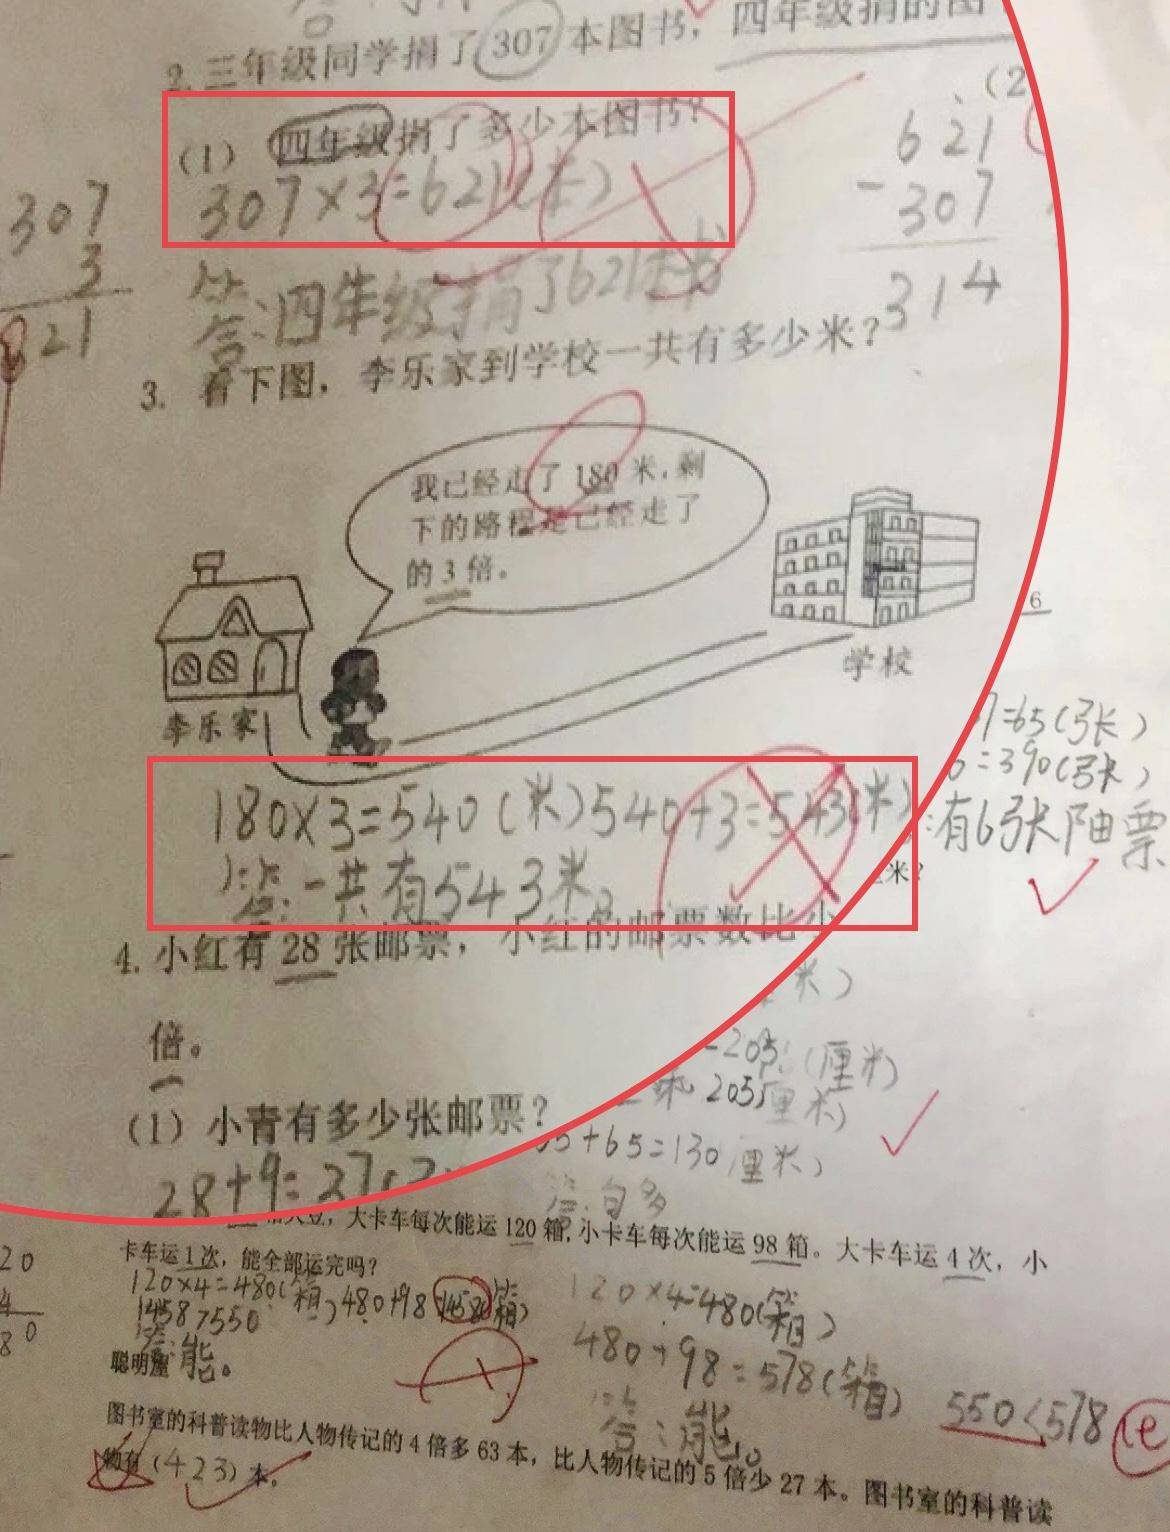 2. 三年级同学捐了307本图书，四年级捐的图
(2
(1) 四年级捐了多少本图书？
307×3=621(本)
307
3
21
621
-307
314
答:四年级捐了621本书
3. 看下图，李乐家到学校一共有多少米？
我已经走了180米，剩
下的路程是已经走了
的3倍。
学校
李乐家
6
7=65(张)
6=390(张)
:有6张邮票
180×3=540(米)540+3=543(米)
答:一共有543米。
米？
4. 小红有28张邮票，小红的邮票数比少
米)
倍。
-205(厘米)
205厘米)
(1) 小青有多少张邮票？
65+65=130(厘米)
28+9=37
答:
大豆，大卡车每次能运120箱，小卡车每次能运98箱。大卡车运4次，小
卡车运1次，能全部运完吗？
20
4
80
120×4=480(箱)480+98=1458(箱)
1458>550
答:能。
120×4=480(箱)
480+98=578(箱)
答:能。
550<578
聪明屋
图书室的科普读物比人物传记的4倍多63本，比人物传记的5倍少27本。图书室的科普读
物有(423)本。